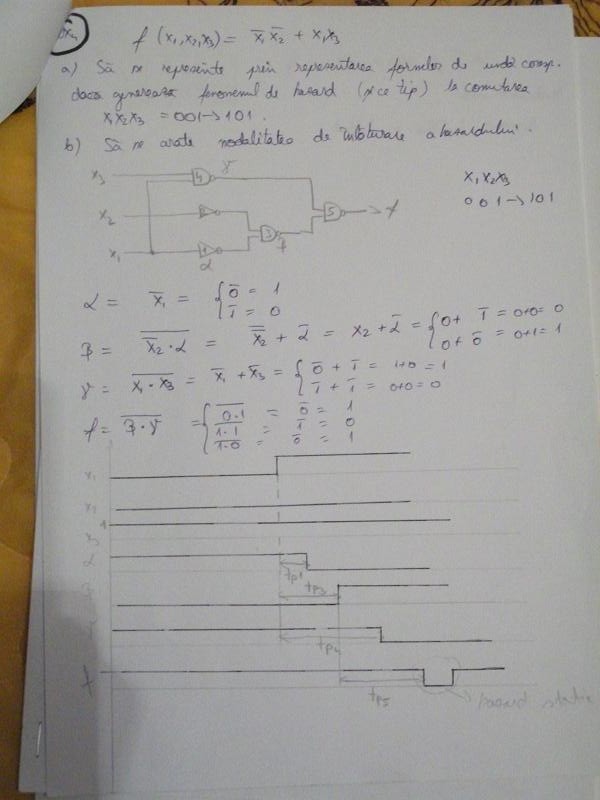 f (x₁,x₂,x₃) = x̅₁ x̅₂ + x₁x₃
a) Să se reprezinte prin reprezentarea formelor de undă coresp.
dacă generează fenomenul de hazard (și ce tip) la comutarea
x₁x₂x₃ = 001→101.
b) Să se arate modalitatea de înlăturare a hazardului.
x₃ 4 γ
x₁x₂x₃
001→101
x₂ 2 5 → f
3
x₁ 1
α
α = x̅₁ = { 0̅ = 1
1̅ = 0
β = \overline{x̅₂·α} = \overline{x̅₂} + α̅ = x₂ + α̅ = { 0 + 1̅ = 0+0 = 0
0 + 0̅ = 0+1 = 1
γ = \overline{x₁·x₃} = x̅₁ + x̅₃ = { 0̅ + 1̅ = 1+0 = 1
1̅ + 1̅ = 0+0 = 0
f = \overline{β·γ} = { \overline{0·1} = 0̅ = 1
\overline{1·1} = 1̅ = 0
\overline{1·0} = 0̅ = 1
x₁
x₂
1
x₃
α
tp1
tp3
tp4
f
tp5
hazard static